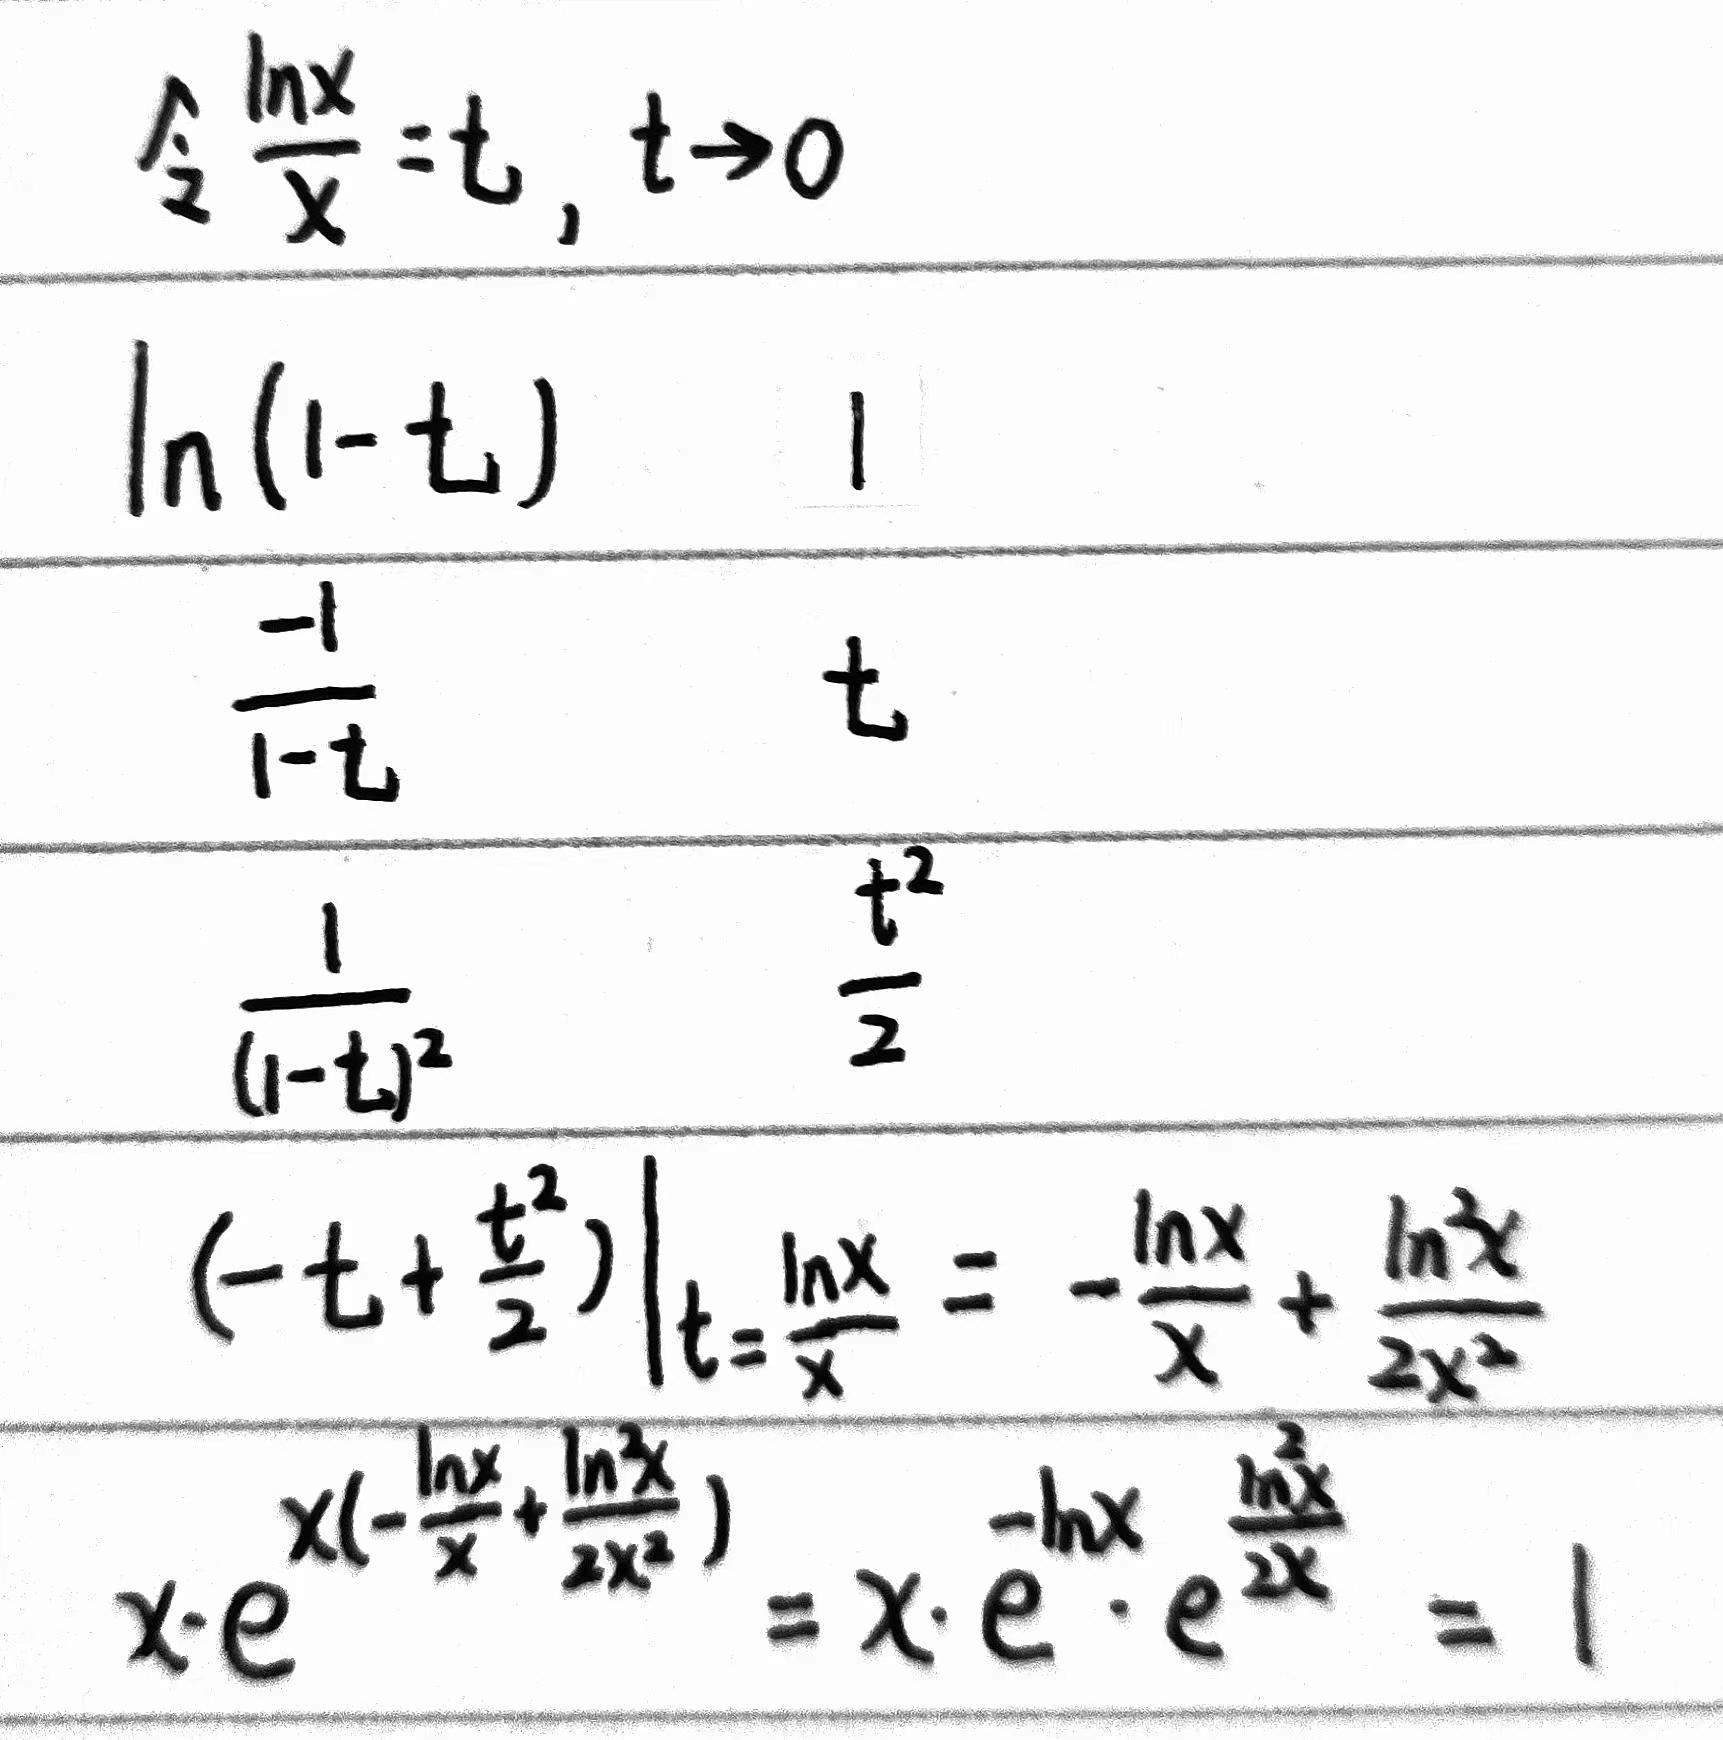 令 lnx/x = t, t→0
ln(1-t) 1
-1/(1-t) t
1/(1-t)² t²/2
(-t+t²/2)|t=lnx/x = -lnx/x + ln²x/2x²
x·e^(x(-lnx/x + ln²x/2x²)) = x·e^(-lnx)·e^(ln²x/2x) = 1